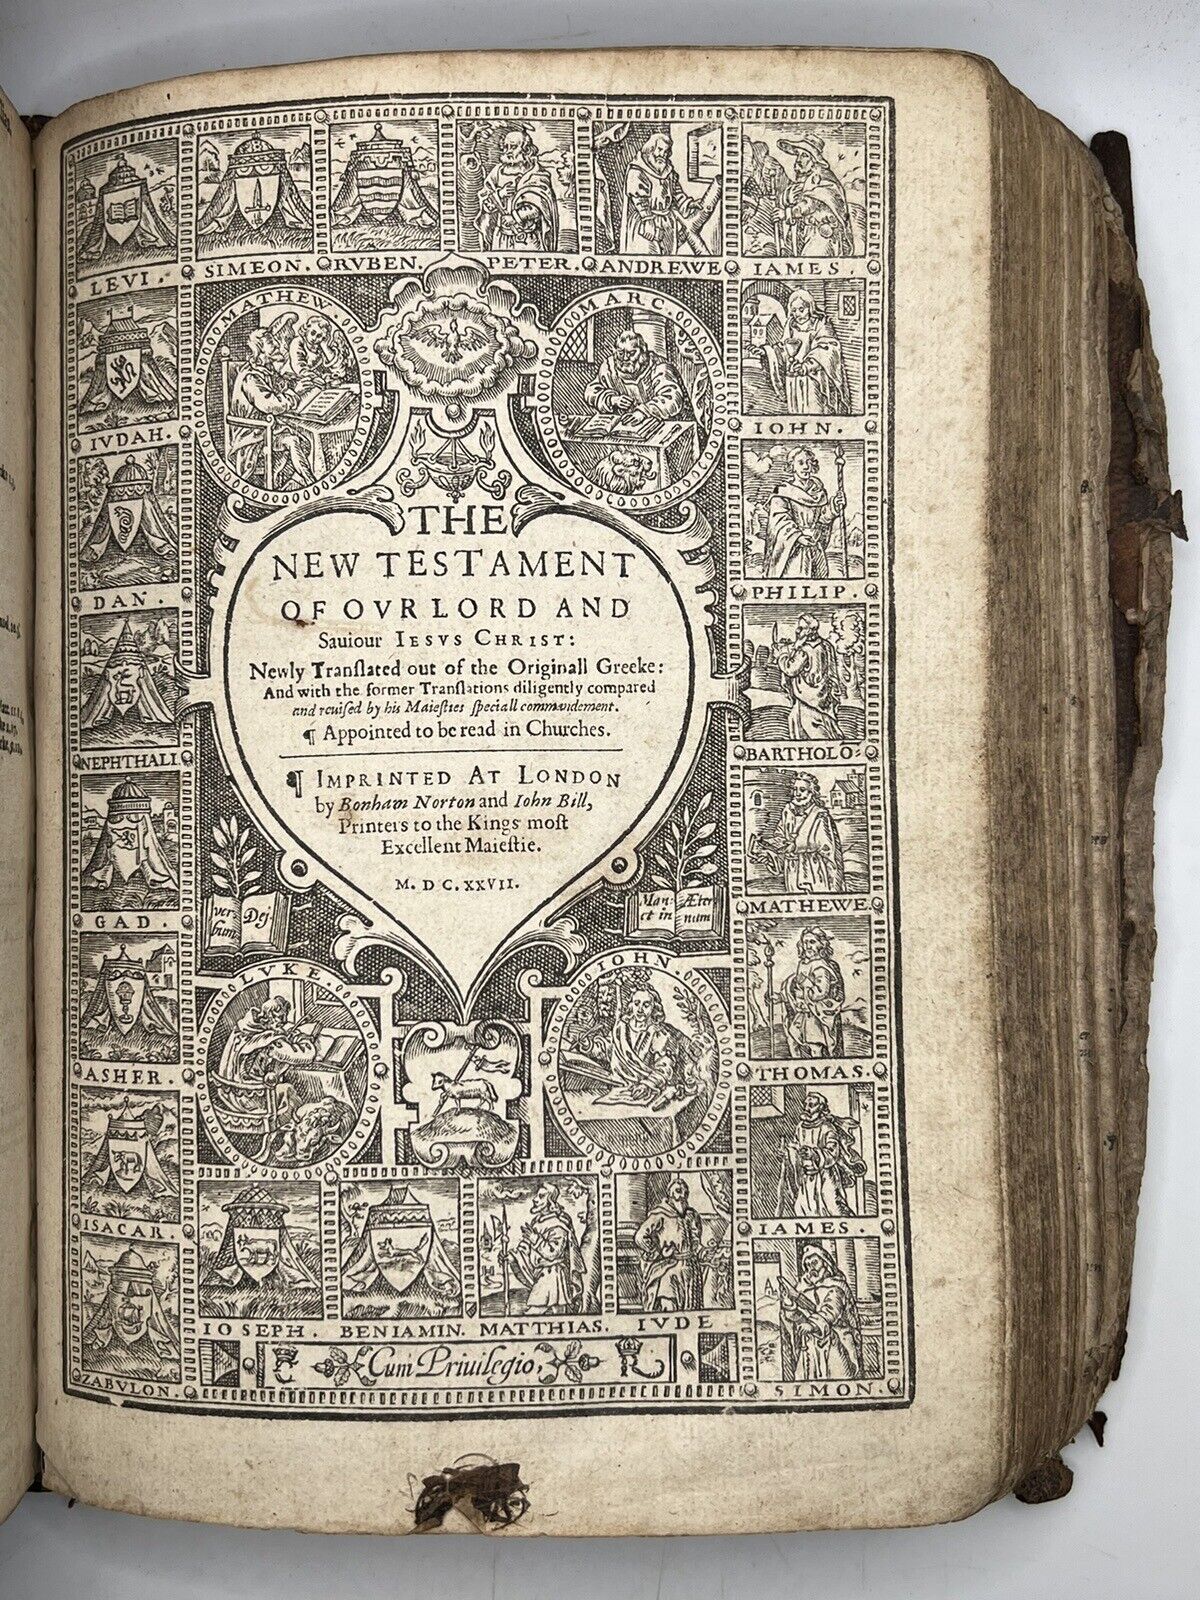 LEVI.
SIMEON.
RVBEN.
PETER.
ANDREWE
IAMES.
MATHEW.
MARC.
IVDAH.
IOHN.
DAN.
PHILIP.
NEPHTHALI.
BARTHOLO:
GAD.
MATHEWE.
ASHER.
THOMAS.
ISACAR.
IAMES.
ZABVLON.
SIMON.
THE
NEW TESTAMENT
OF OVR LORD AND
Sauiour IESVS CHRIST:
Newly Tranſlated out of the Originall Greeke:
And with the former Tranſlations diligently compared
and reuiſed by his Maieſties ſpeciall commandement.
¶ Appointed to be read in Churches.
¶ IMPRINTED AT LONDON
by Bonham Norton and Iohn Bill,
Printers to the Kings moſt
Excellent Maieſtie.
M. DC. XXVII.
ver Dej
bum
Man Æter
et in num
LVKE
IOHN.
IOSEPH.
BENIAMIN.
MATTHIAS.
IVDE
R
Cum Priuilegio,
R